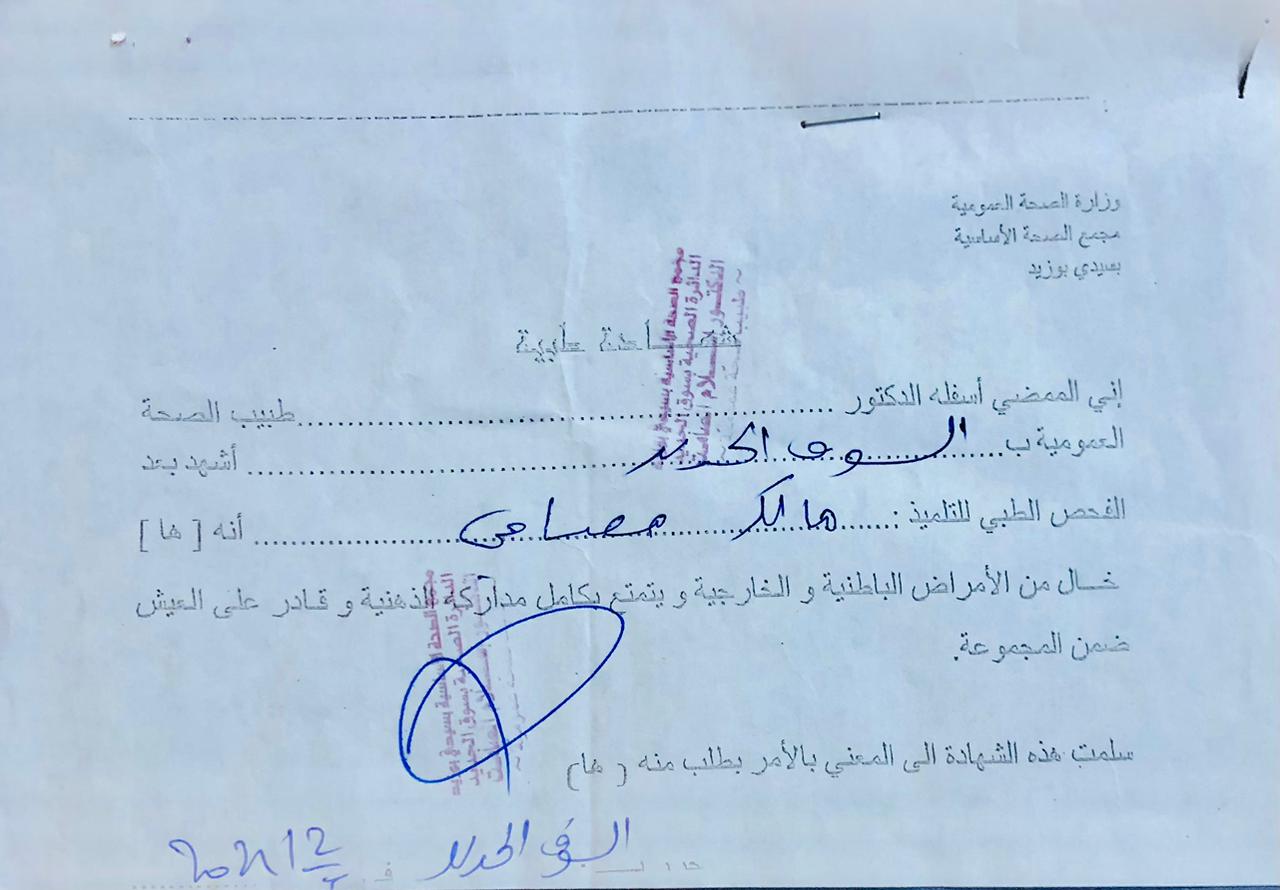 وزارة الصحة العمومية
مجمع الصحة الأساسية
بسيدي بوزيد
مجمع الصحة الأساسية بسيدي بوزيد
الدائرة الصحية بسوق الجديد
الدكتور
طبيب
شهادة طبية
إني الممضي أسفله الدكتور ........................ طبيب الصحة
العمومية ب... السوق الجديد ........................ أشهد بعد
الفحص الطبي للتلميذ : ........................ أنه [ ها ]
خال من الأمراض الباطنية و الخارجية و يتمتع بكامل مداركه الذهنية و قادر على العيش
ضمن المجموعة.
مجمع الصحة الأساسية بسيدي بوزيد
الدائرة الصحية بسوق الجديد
سلمت هذه الشهادة الى المعني بالأمر بطلب منه ( ها)
السوق الجديد